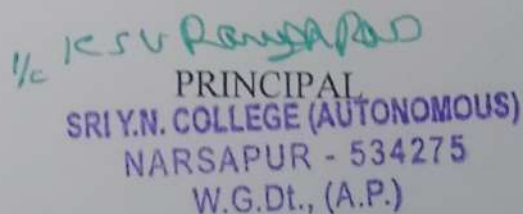 I/c KSV Ranga Rao
PRINCIPAL
SRI Y.N. COLLEGE (AUTONOMOUS)
NARSAPUR - 534275
W.G.Dt., (A.P.)